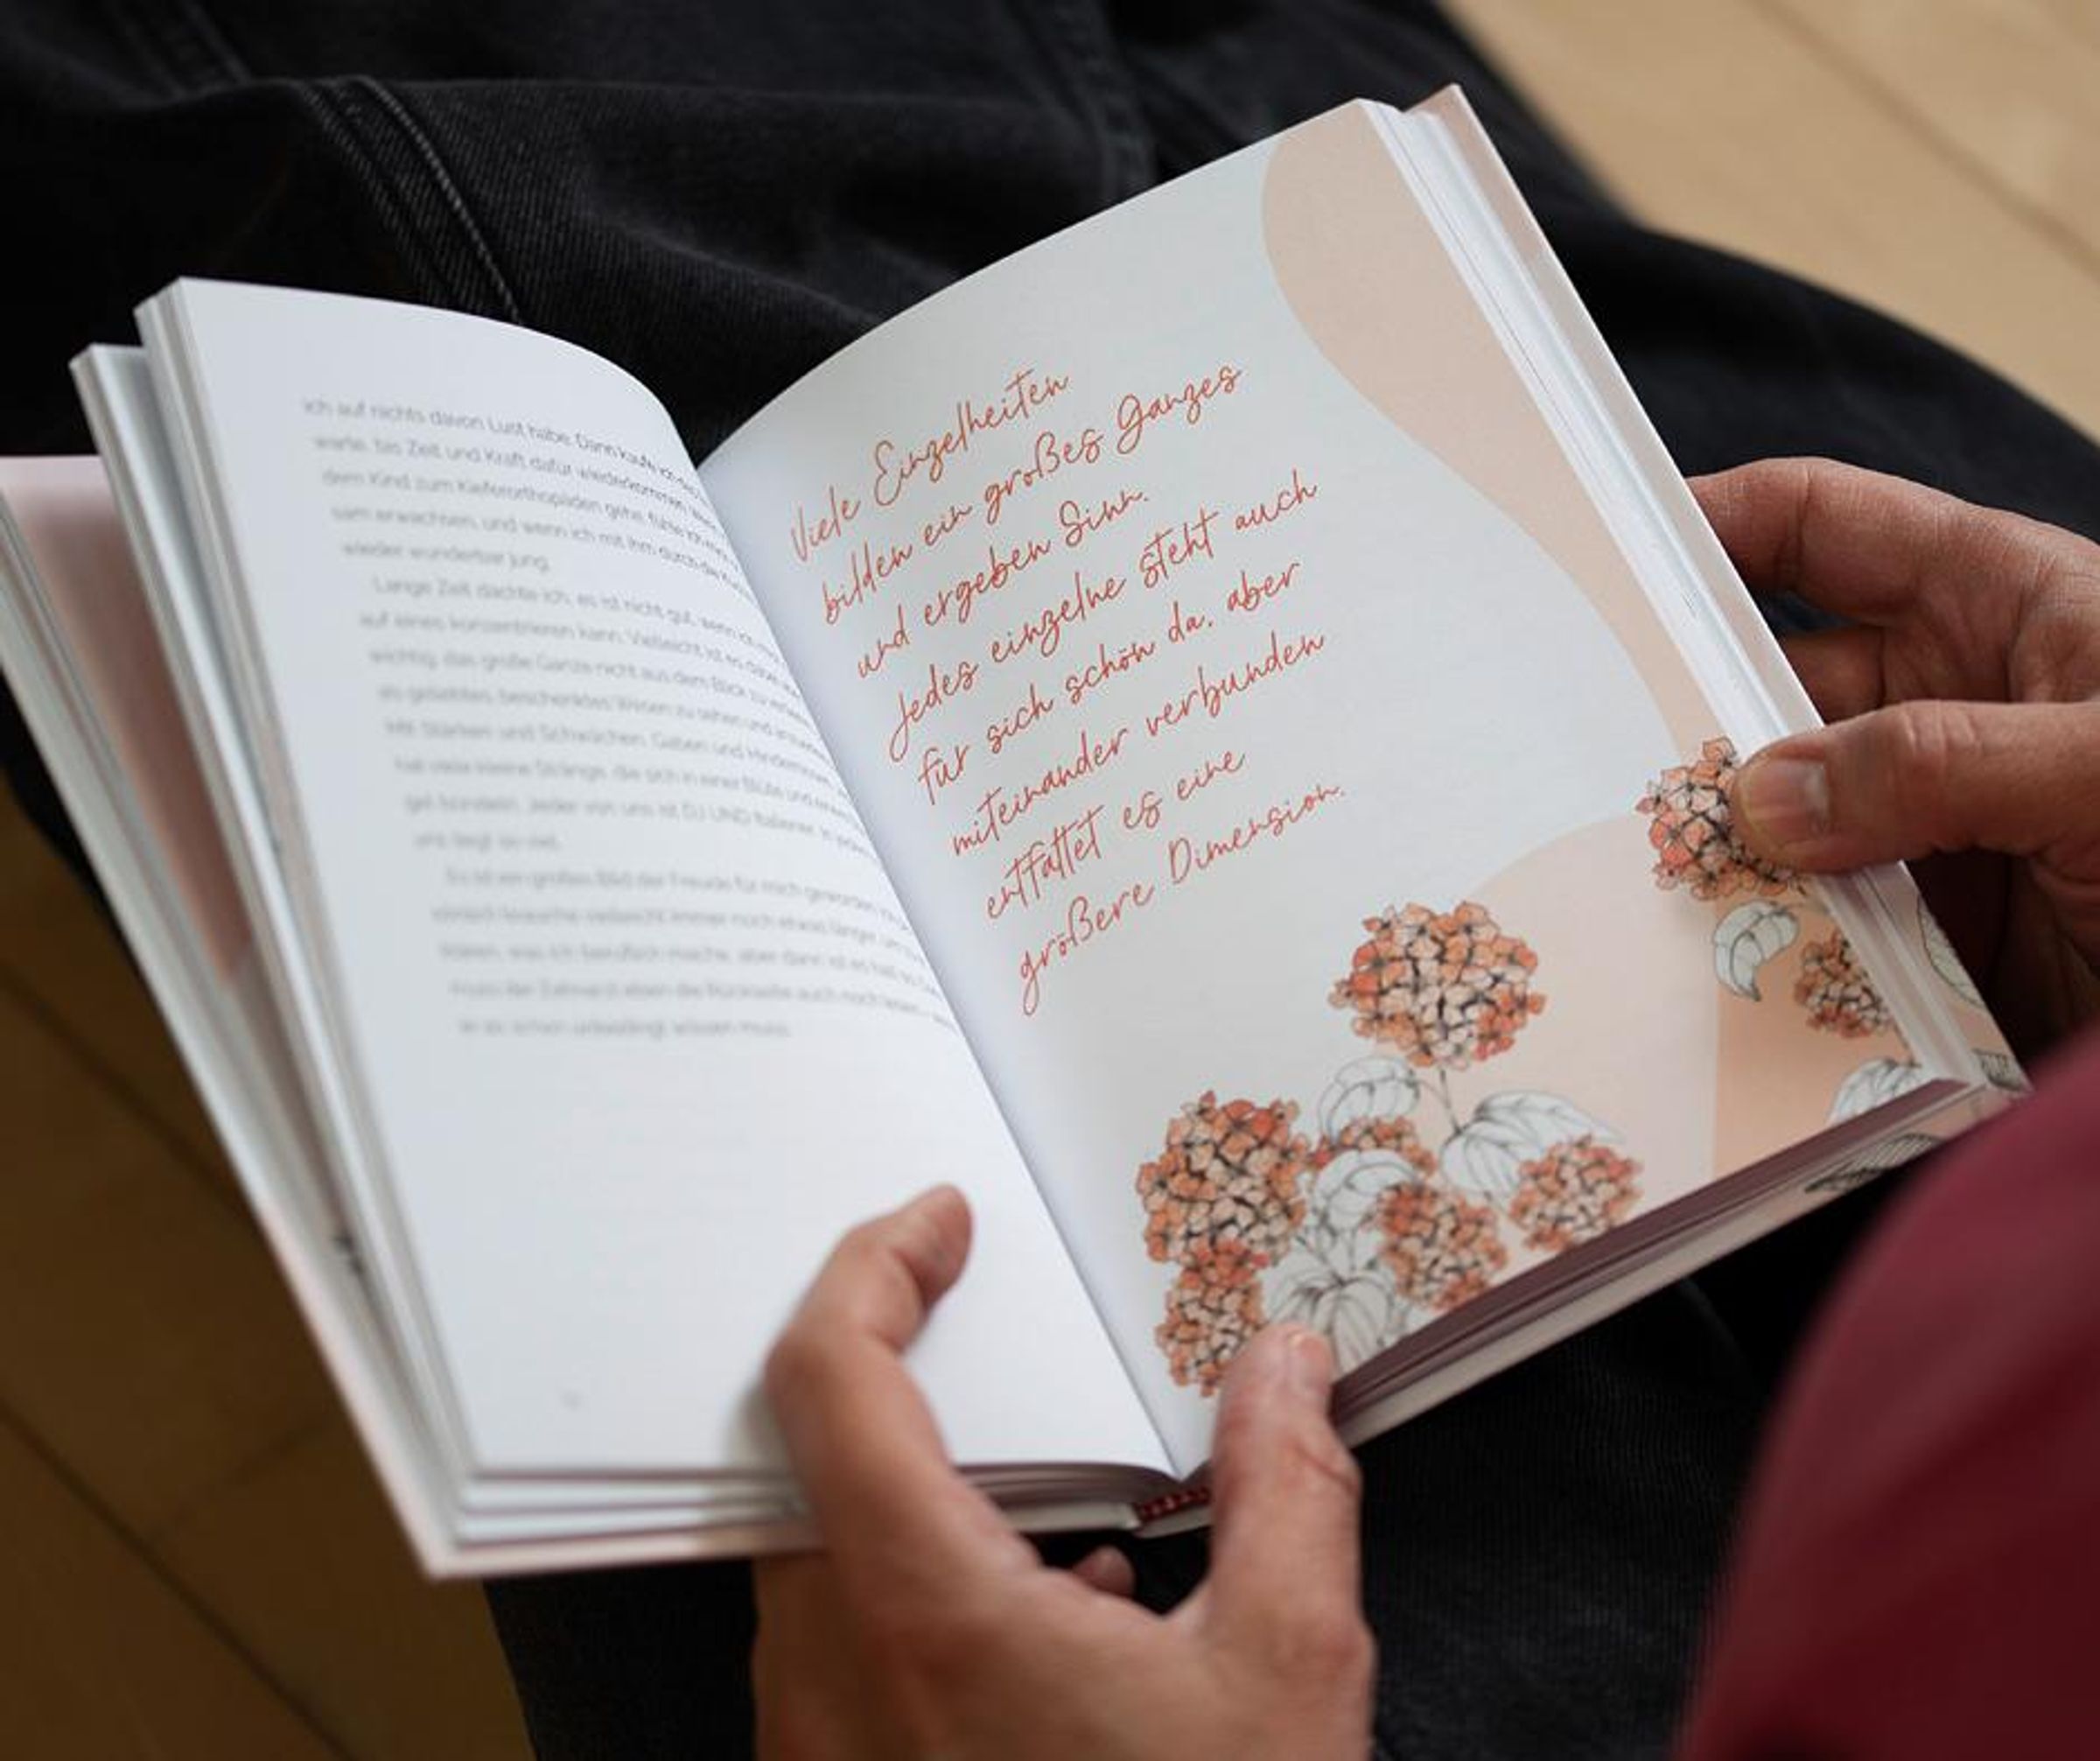 ich auf nichts davon Lust habe. Dann kaufe ich
warte, bis Zeit und Kraft dafür wiederkommen.
dem Kind zum Kieferorthopäden gehe, fühle ich mich
sam erwachsen, und wenn ich mit ihm durch die
wieder wunderbar jung.
Lange Zeit dachte ich, es ist nicht gut, wenn ich
auf eines konzentrieren kann. Vielleicht ist es dabei
wichtig, das große Ganze nicht aus dem Blick zu
als geliebtes, beschenktes Wesen zu sehen und
Mit Stärken und Schwächen, Gaben und
hat viele kleine Stränge, die sich in einer Blüte und
gel bündeln. Jeder von uns ist DJ UND Italiener. In
uns liegt so viel.
Es ist ein großes Bild der Freude für mich geworden.
vielleicht immer noch etwas länger, um
klären, was ich beruflich mache, aber dann ist es halt so.
muss der Zahnarzt eben die Rückseite auch noch
er es schon unbedingt wissen muss.
Viele Einzelheiten
bilden ein großes Ganzes
und ergeben Sinn.
Jedes einzelne steht auch
für sich schön da, aber
miteinander verbunden
entfaltet es eine
größere Dimension.